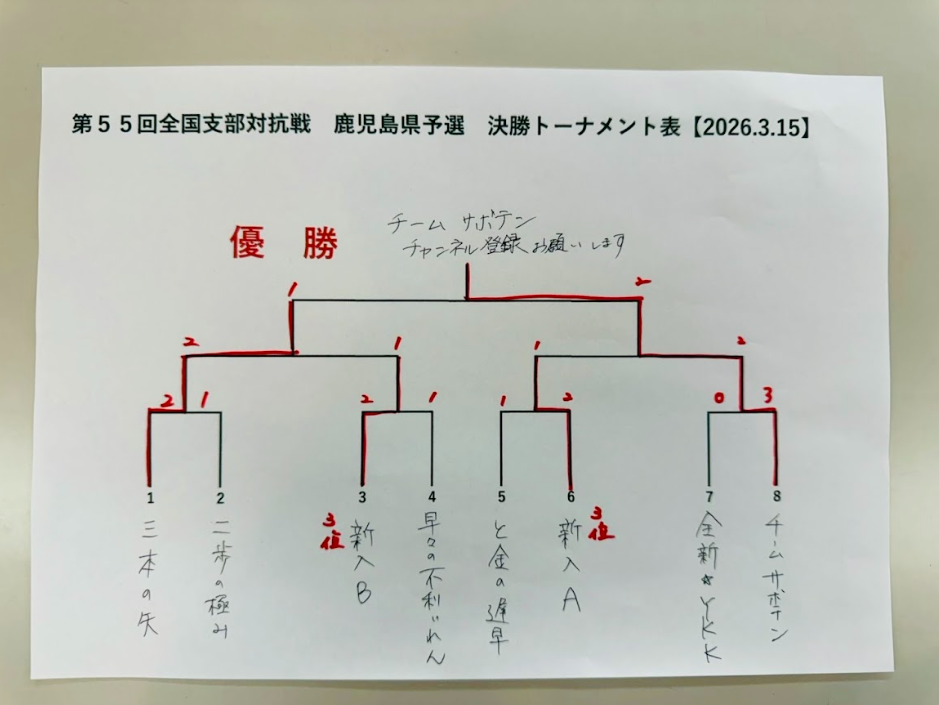 第55回全国支部対抗戦　鹿児島県予選　決勝トーナメント表【2026.3.15】
優 勝
チーム サボテン
チャンネル登録お願いします
1 2
2 1 1 2
2 1 2 1 1 2 0 3
1 2 3 4 5 6 7 8
三本の矢
二歩の極み
3位
新入B
早々の不利ぃれん
と金の遅早
新入A
3位
全新☆YKK
チームサボテン